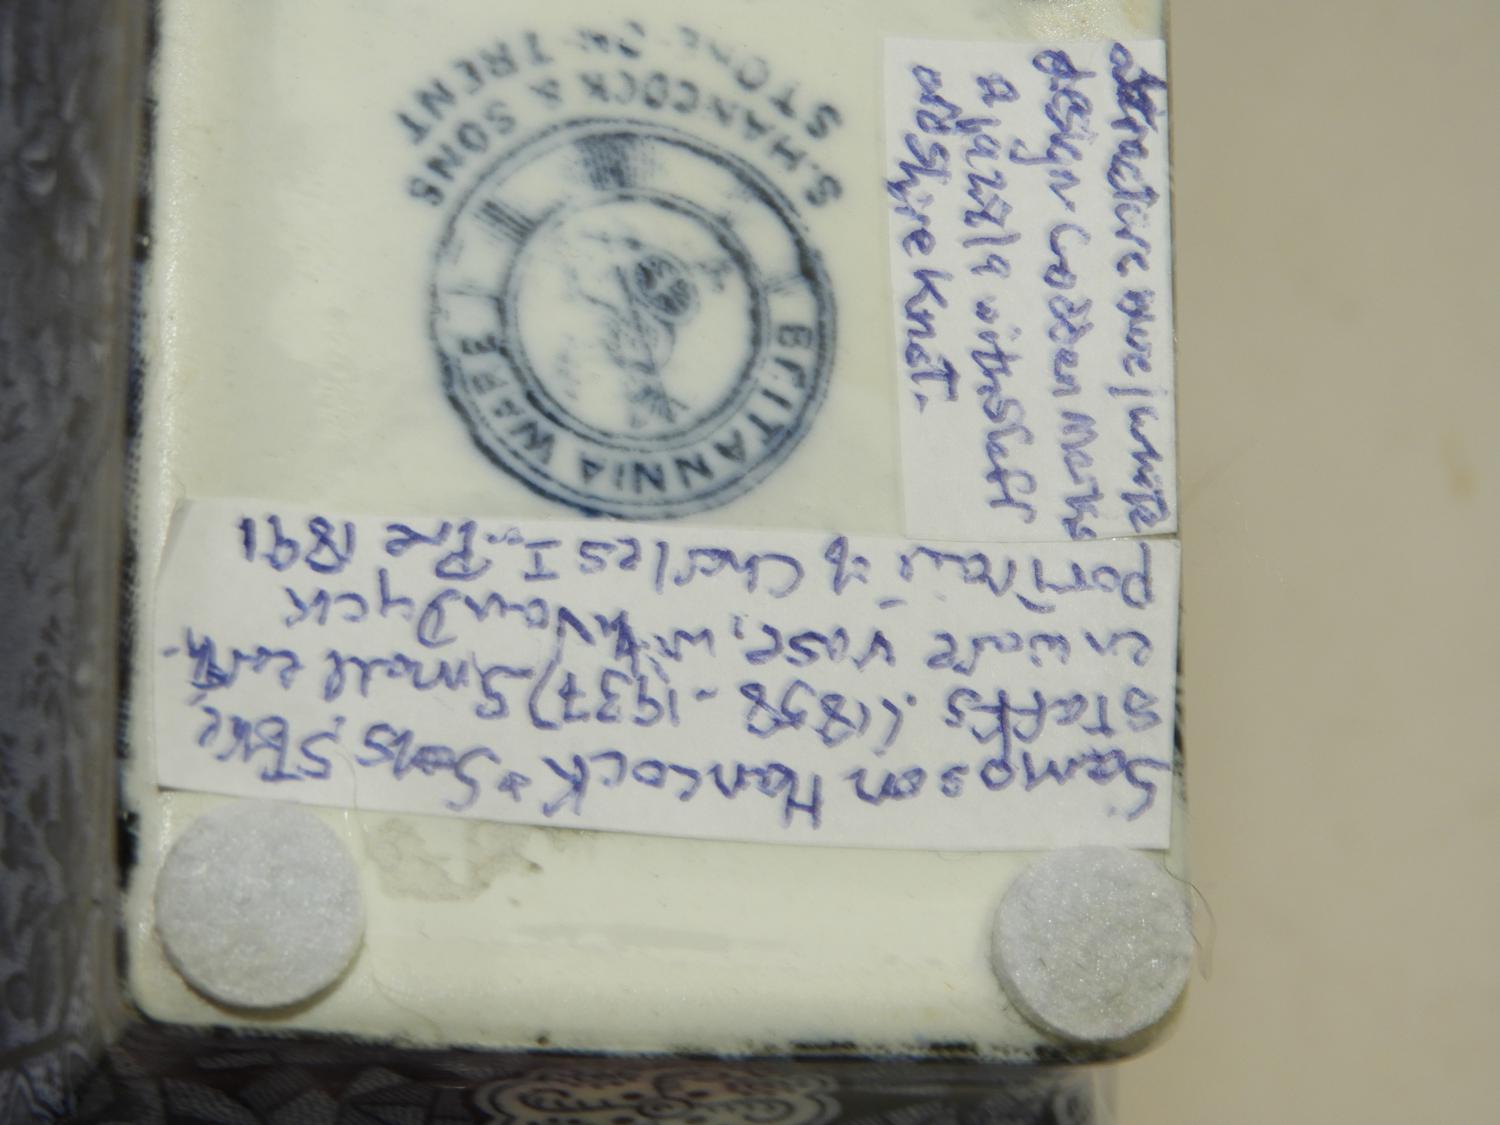 BRITANNIA WARE
S. HANCOCK & SONS
STOKE ON TRENT
Sampson Hancock & Sons, Stoke
Staffs. (1858-1937) Small earth-
enware vase, with Van Dyck
portrait of Charles I. Pre 1891
attractive blue/white
design Godden Marks
a 1927/9 with Staff
ordshire Knot.